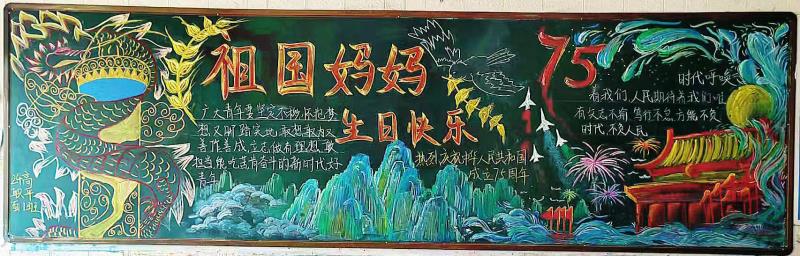 祖国妈妈
生日快乐
75
广大青年要坚定不移,怀抱梦
想又脚踏实地,敢想敢为又
善作善成,立志做有理想、敢
担当、能吃苦、肯奋斗的新时代好
青年
热烈庆祝中华人民共和国
成立75周年
时代呼唤
着我们,人民期待着我们,唯
有矢志不渝、笃行不怠,方能不负
时代、不负人民